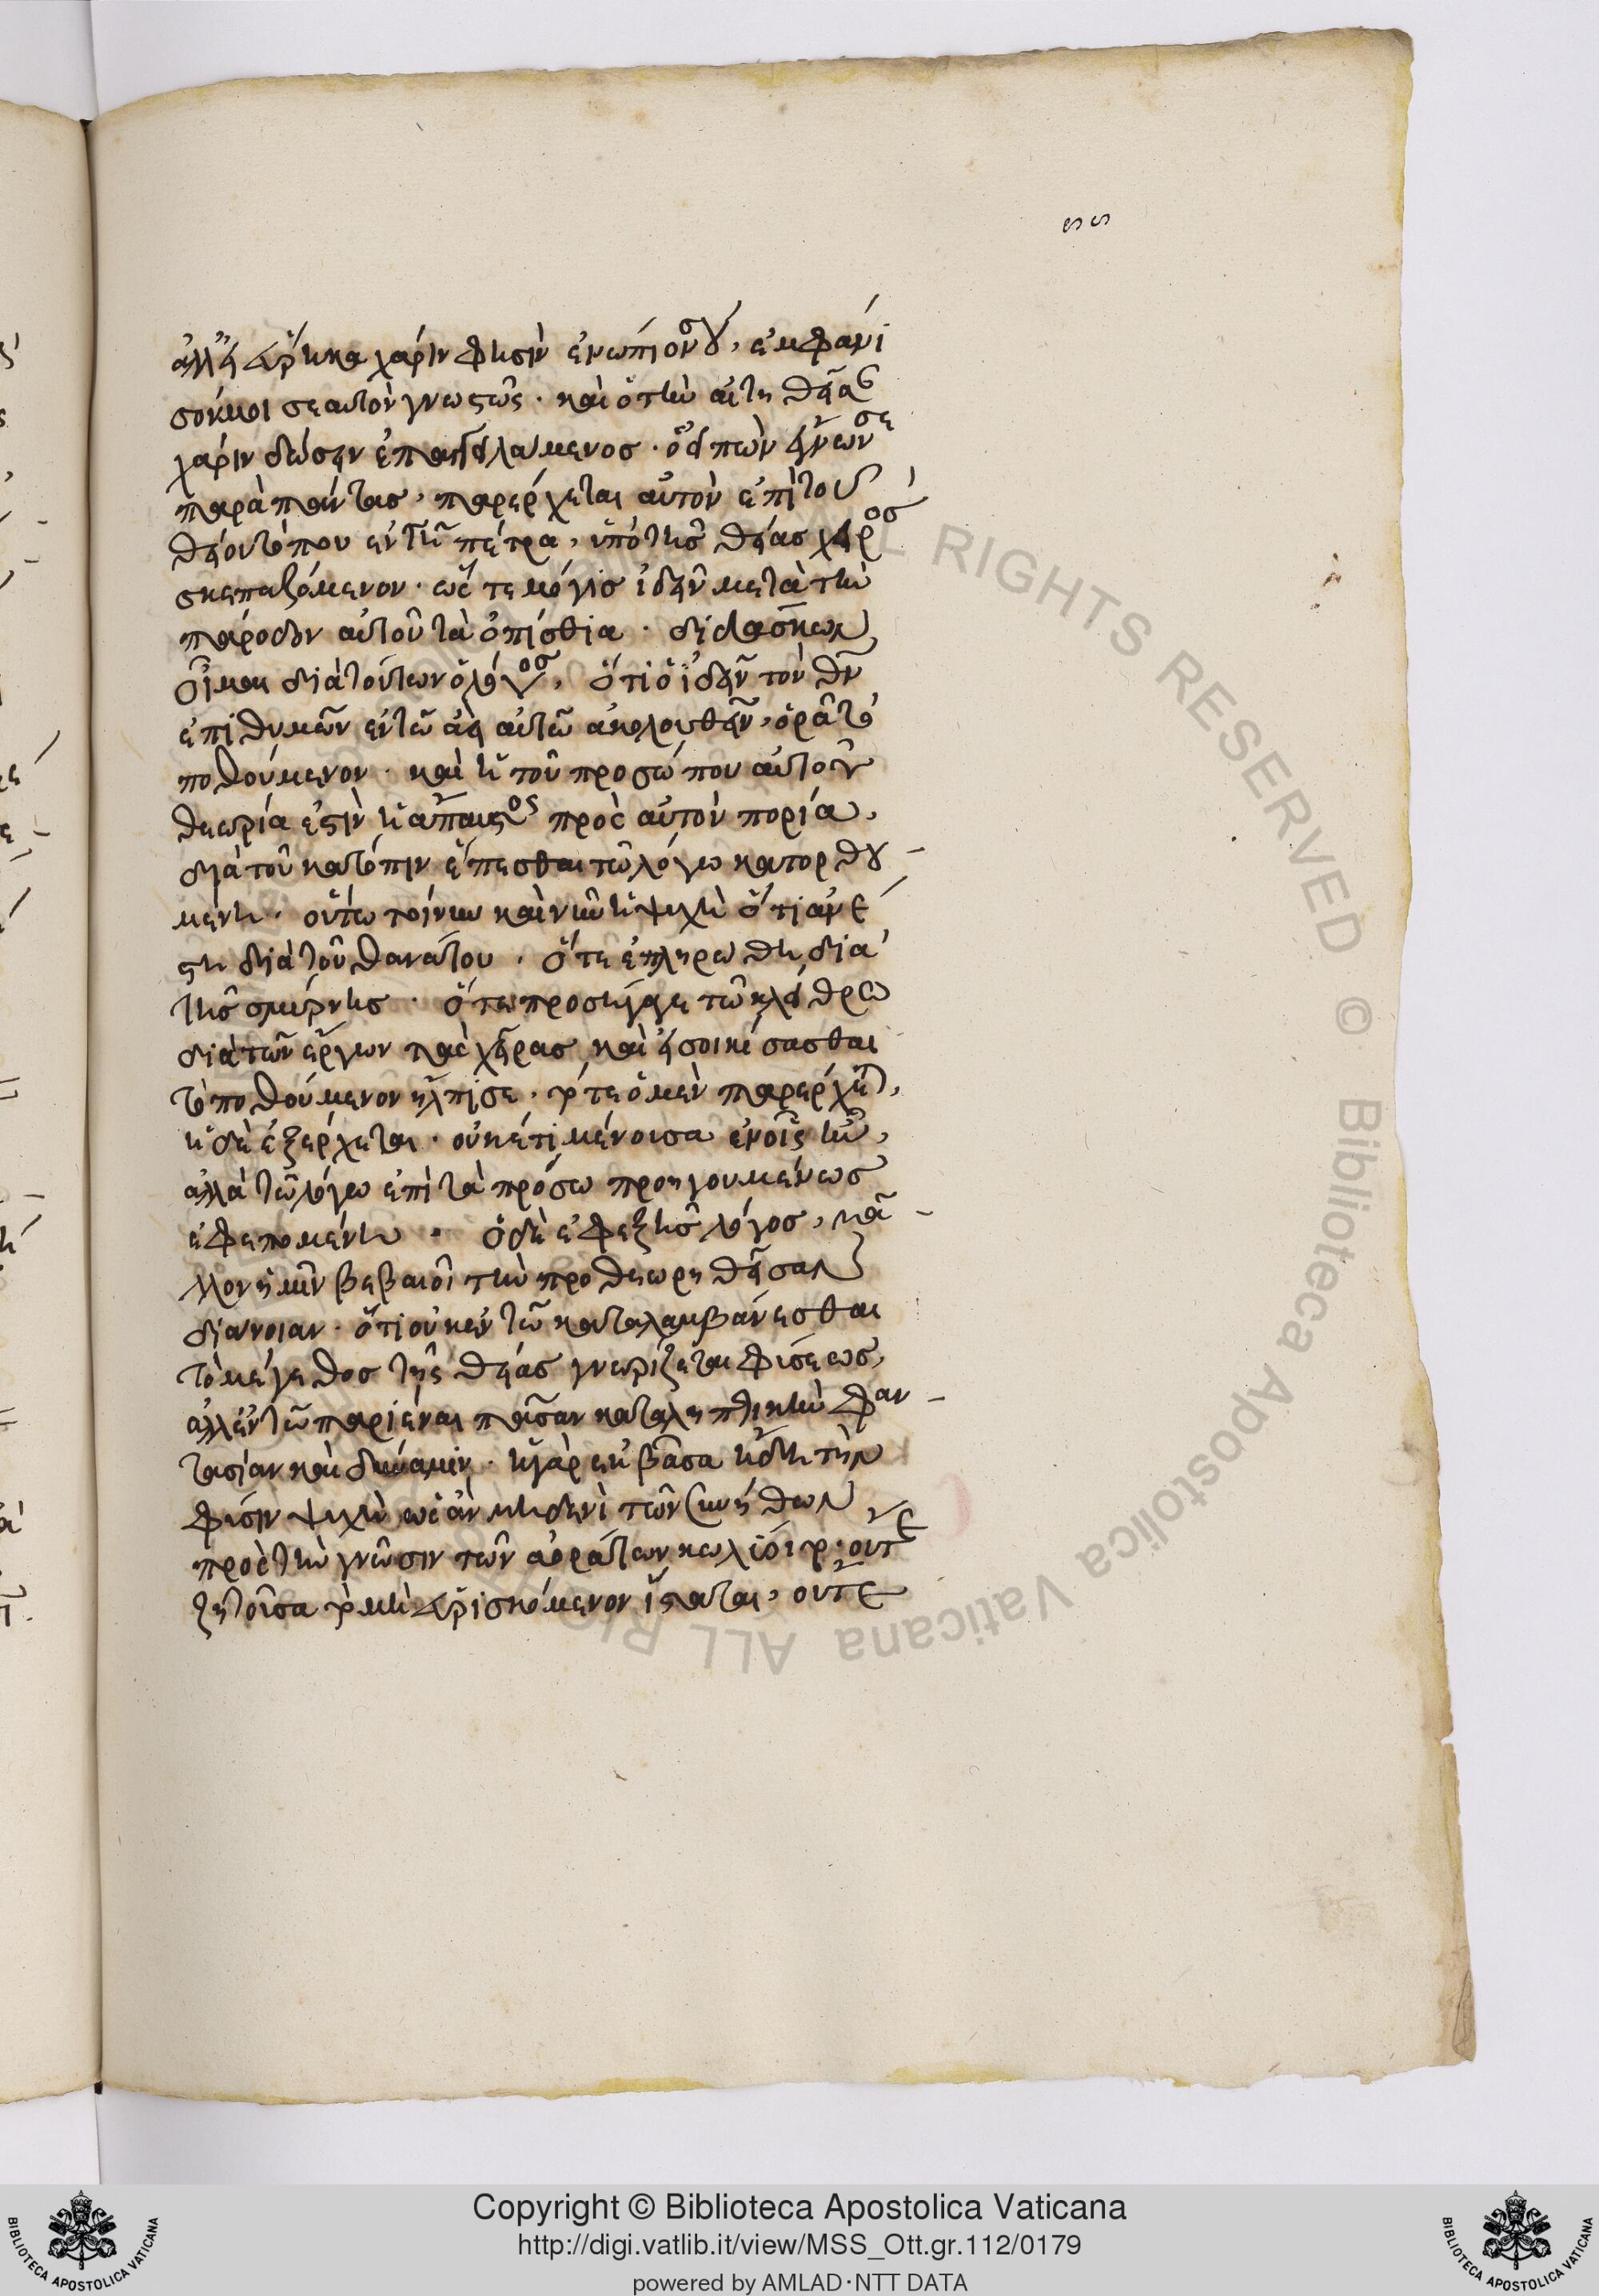 ςς
ἀλλ' εἰ εὕρηκα χάριν φησὶν ἐνώπιόν σου, ἐμφάνι
σόν μοι σεαυτὸν γνωστῶς. καὶ ὁ τὴν αἰτηθεῖσαν
χάριν δώσειν ἐπαγγειλάμενος. ὁ εἰπὼν ἔγνων σε
παρὰ πάντας, παρέρχεται αὐτὸν ἐπὶ τοῦ
θείου τόπου ἐν τῇ πέτρα, ὑπὸ τῆς θείας χειρὸς
σκεπαζόμενον. ὥς τε μόγις ἰδεῖν μετὰ τὴν
πάροδον αὐτοῦ τὰ ὀπίσθια. διδάσκων
οἶμαι διὰ τούτων ὁ λόγος, ὅτι ὁ ἰδεῖν τὸν θν
ἐπιθυμῶν ἐν τῶ ἀεὶ αὐτῶ ἀκολουθεῖν, ὁρᾶ τὸ
ποθούμενον. καὶ ἡ τοῦ προσώπου αὐτοῦ
θεωρία ἐστὶν ἡ ἄπαυστος πρὸς αὐτὸν πορία,
διὰ τοῦ κατόπιν ἕπεσθαι τῶ λόγω κατορθου
μένη. οὕτω τοίνυν καὶ νῦν ἡ ψυχὴ ὅτι ἀνέ
στη διὰ τοῦ θανάτου. ὅτε ἐπληρώθη διὰ
τῆς σμύρνης. ὅτε προσήγαγε τῶ κλείθρω
διὰ τῶν ἔργων τὰς χεῖρας καὶ εἰσοικίσασθαι
τὸ ποθούμενον ἤλπισε. τότε ὁ μὲν παρέρχεται,
ἡ δὲ ἐξέρχεται. οὐκέτι μένουσα ἐν οἷς ἦν,
ἀλλὰ τῶ λόγω ἐπὶ τὰ πρόσω προηγουμένως
ἐφεπομένη. ὁ δὲ ἐφεξῆς λόγος, μᾶ
λλον ἡμῖν βεβαιοῖ τὴν προθεωρηθεῖσαν
διάνοιαν. ὅτι οὐκ ἐν τῶ καταλαμβάνεσθαι
τὸ μέγεθος τῆς θείας γνωρίζεται φύσεως,
ἀλλ' ἐν τῶ παριέναι πᾶσαν καταληπτικὴν φαν
τασίαν καὶ δύναμιν. ἡ γὰρ ἐκβᾶσα ἤδη τὴν
φύσιν ψυχὴ ὡς ἂν μηδενὶ τῶν συνήθων
πρὸς τὴν γνῶσιν τῶν ἀοράτων κωλύοιτο. οὔτε
ζητοῦσα τὸ μὴ εὑρισκόμενον ἵσταται, οὔτε
Copyright © Biblioteca Apostolica Vaticana
http://digi.vatlib.it/view/MSS_Ott.gr.112/0179
powered by AMLAD·NTT DATA